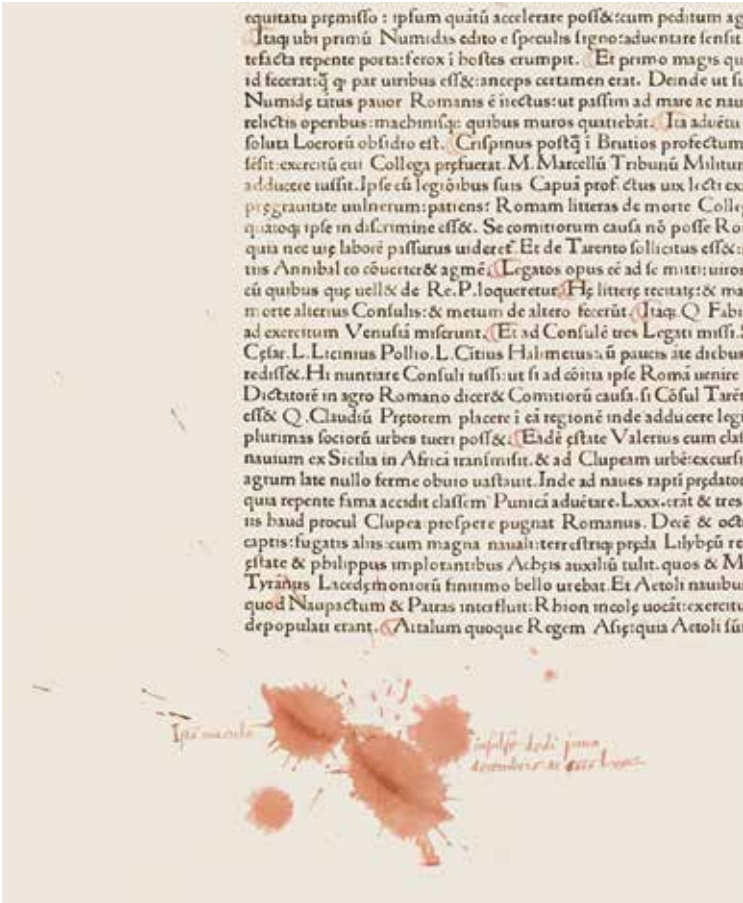 equitatu pręmisso : ipsum quātū accelerare poss&: cum peditum ag
Itaq; ubi primū Numidas edito e speculis signo: aduentare sensit
tefacta repente porta: ferox ī hostes erumpit. Et primo magis qu
id fecerat: q̄ ꝙ par uiribus ess&: anceps certamen erat. Deinde ut su
Numidę tātus pauor Romanis ē iiectus: ut passim ad mare ac nau
relictis operibus: machinisq;: quibus muros quatiebāt. Ita aduētu
soluta Locrorū obsidio est. Crispinus postq̄ ī Brutios profectum
sēsit: exercitū cui Collega pręfuerat. M. Marcellū Tribunū Militum
adducere iussit. Ipse cū legiōibus suis Capuā prof ctus uix lecti ex
pręgrauitate uulnerum: patiens: Romam litteras de morte Colle
quatoq; ipse in discrimine ess&. Se comitiorum causa nō posse Ro
quia nec uię laborē passurus uideret̄ Et de Tarento sollicitus ess&:
tiis Annibal eo cōuerter& agmē. Legatos opus eē ad se mitti: uiros
cū quibus quę uell& de Re.P. loqueretur. Hę litterę recitatę: & ma
morte alterius Consulis: & metum de altero fecerūt. Itaq; Q. Fabi
ad exercitum Venusiā miserunt. Et ad Consulē tres Legati missi. S
Cęsar. L. Licinius Pollio. L. Citius Halimetus: ū paucis āte diebus
rediss&. Hi nuntiare Consuli iussi: ut si ad cōitia ipse Romā uenire
Dictatorē in agro Romano dicer& Comitiorū causa. si Cōsul Tarēt
ess& Q. Claudiū Prętorem placere ī eā regionē inde adducere legi
plurimas sociorū urbes tueri poss&. Eadē ęstate Valerius cum clas
nauium ex Sicilia in Africā transmisit. & ad Clupeam urbē: excursi
agrum late nullo ferme obuio uastauit. Inde ad naues rapti prędator
quia repente fama accidit classem Punicā aduētare. Lxxx. erāt & tres
iis haud procul Clupea prospere pugnat Romanus. Decē & octo
captis: fugatis aliis: cum magna nauali: terrestriq; pręda Lilybęū re
ęstate & philippus implorantibus Achęis auxiliū tulit. quos & M
Tyrānus Lacedęmoniorū finitimo bello urebat. Et Aetoli nauibus
quod Naupactum & Patras interfluit: Rhion incolę uocāt: exercitu
depopulati erant. Attalum quoque Regem Asię: quia Aetoli sūm